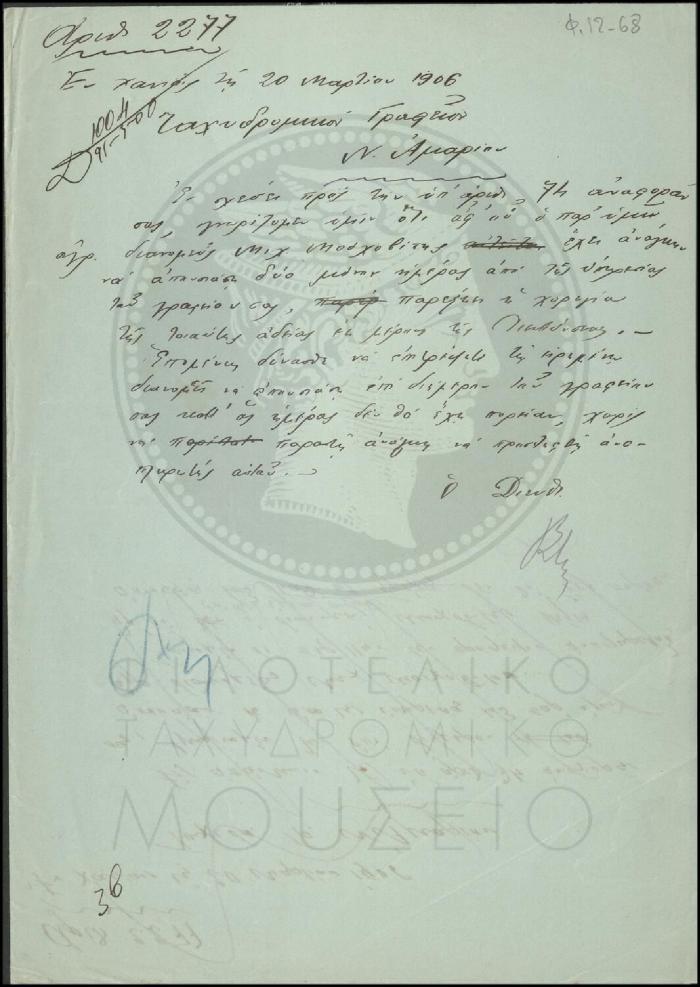 Φ.12-63
Αριθ 2277
Εν Χανίοις τῇ 20 Μαρτίου 1906
Ταχυδρομικόν Γραφεῖον
Ν. Ἀμαρίου
Ἐν σχέσει πρός τήν ὑπ' ἀριθ. 74 ἀναφοράν
σας, γνωρίζομεν ὑμῖν ὅτι ἀφ' οὗ ὁ παρ' ὑμῖν
ἀγρ. διανομεύς Μιχ Μοσχοβίτης ἔχει ἀνάγκην
νά ἀπουσιάσῃ δύο μόνον ἡμέρας ἀπό τῆς ὑπηρεσίας
τοῦ γραφείου σας, ἡ χορηγία
τῆς τοιαύτης ἀδείας ἐκ μέρους τῆς Διευθύνσεως. —
Ἑπομένως δύνασθε νά ἐπιτρέψητε
νά ἀπουσιάσῃ ἐπί διήμερον τοῦ γραφείου
σας καθ' ἅς ἡμέρας δέν θά ἔχῃ πορείαν, χωρίς
νά παραστῇ ἀνάγκη νά προσληφθῇ ἀνα-
πληρωτής αὐτοῦ. —
Ὁ Διευθ.
ΦΙΛΟΤΕΛΙΚΟ
ΤΑΧΥΔΡΟΜΙΚΟ
ΜΟΥΣΕΙΟ